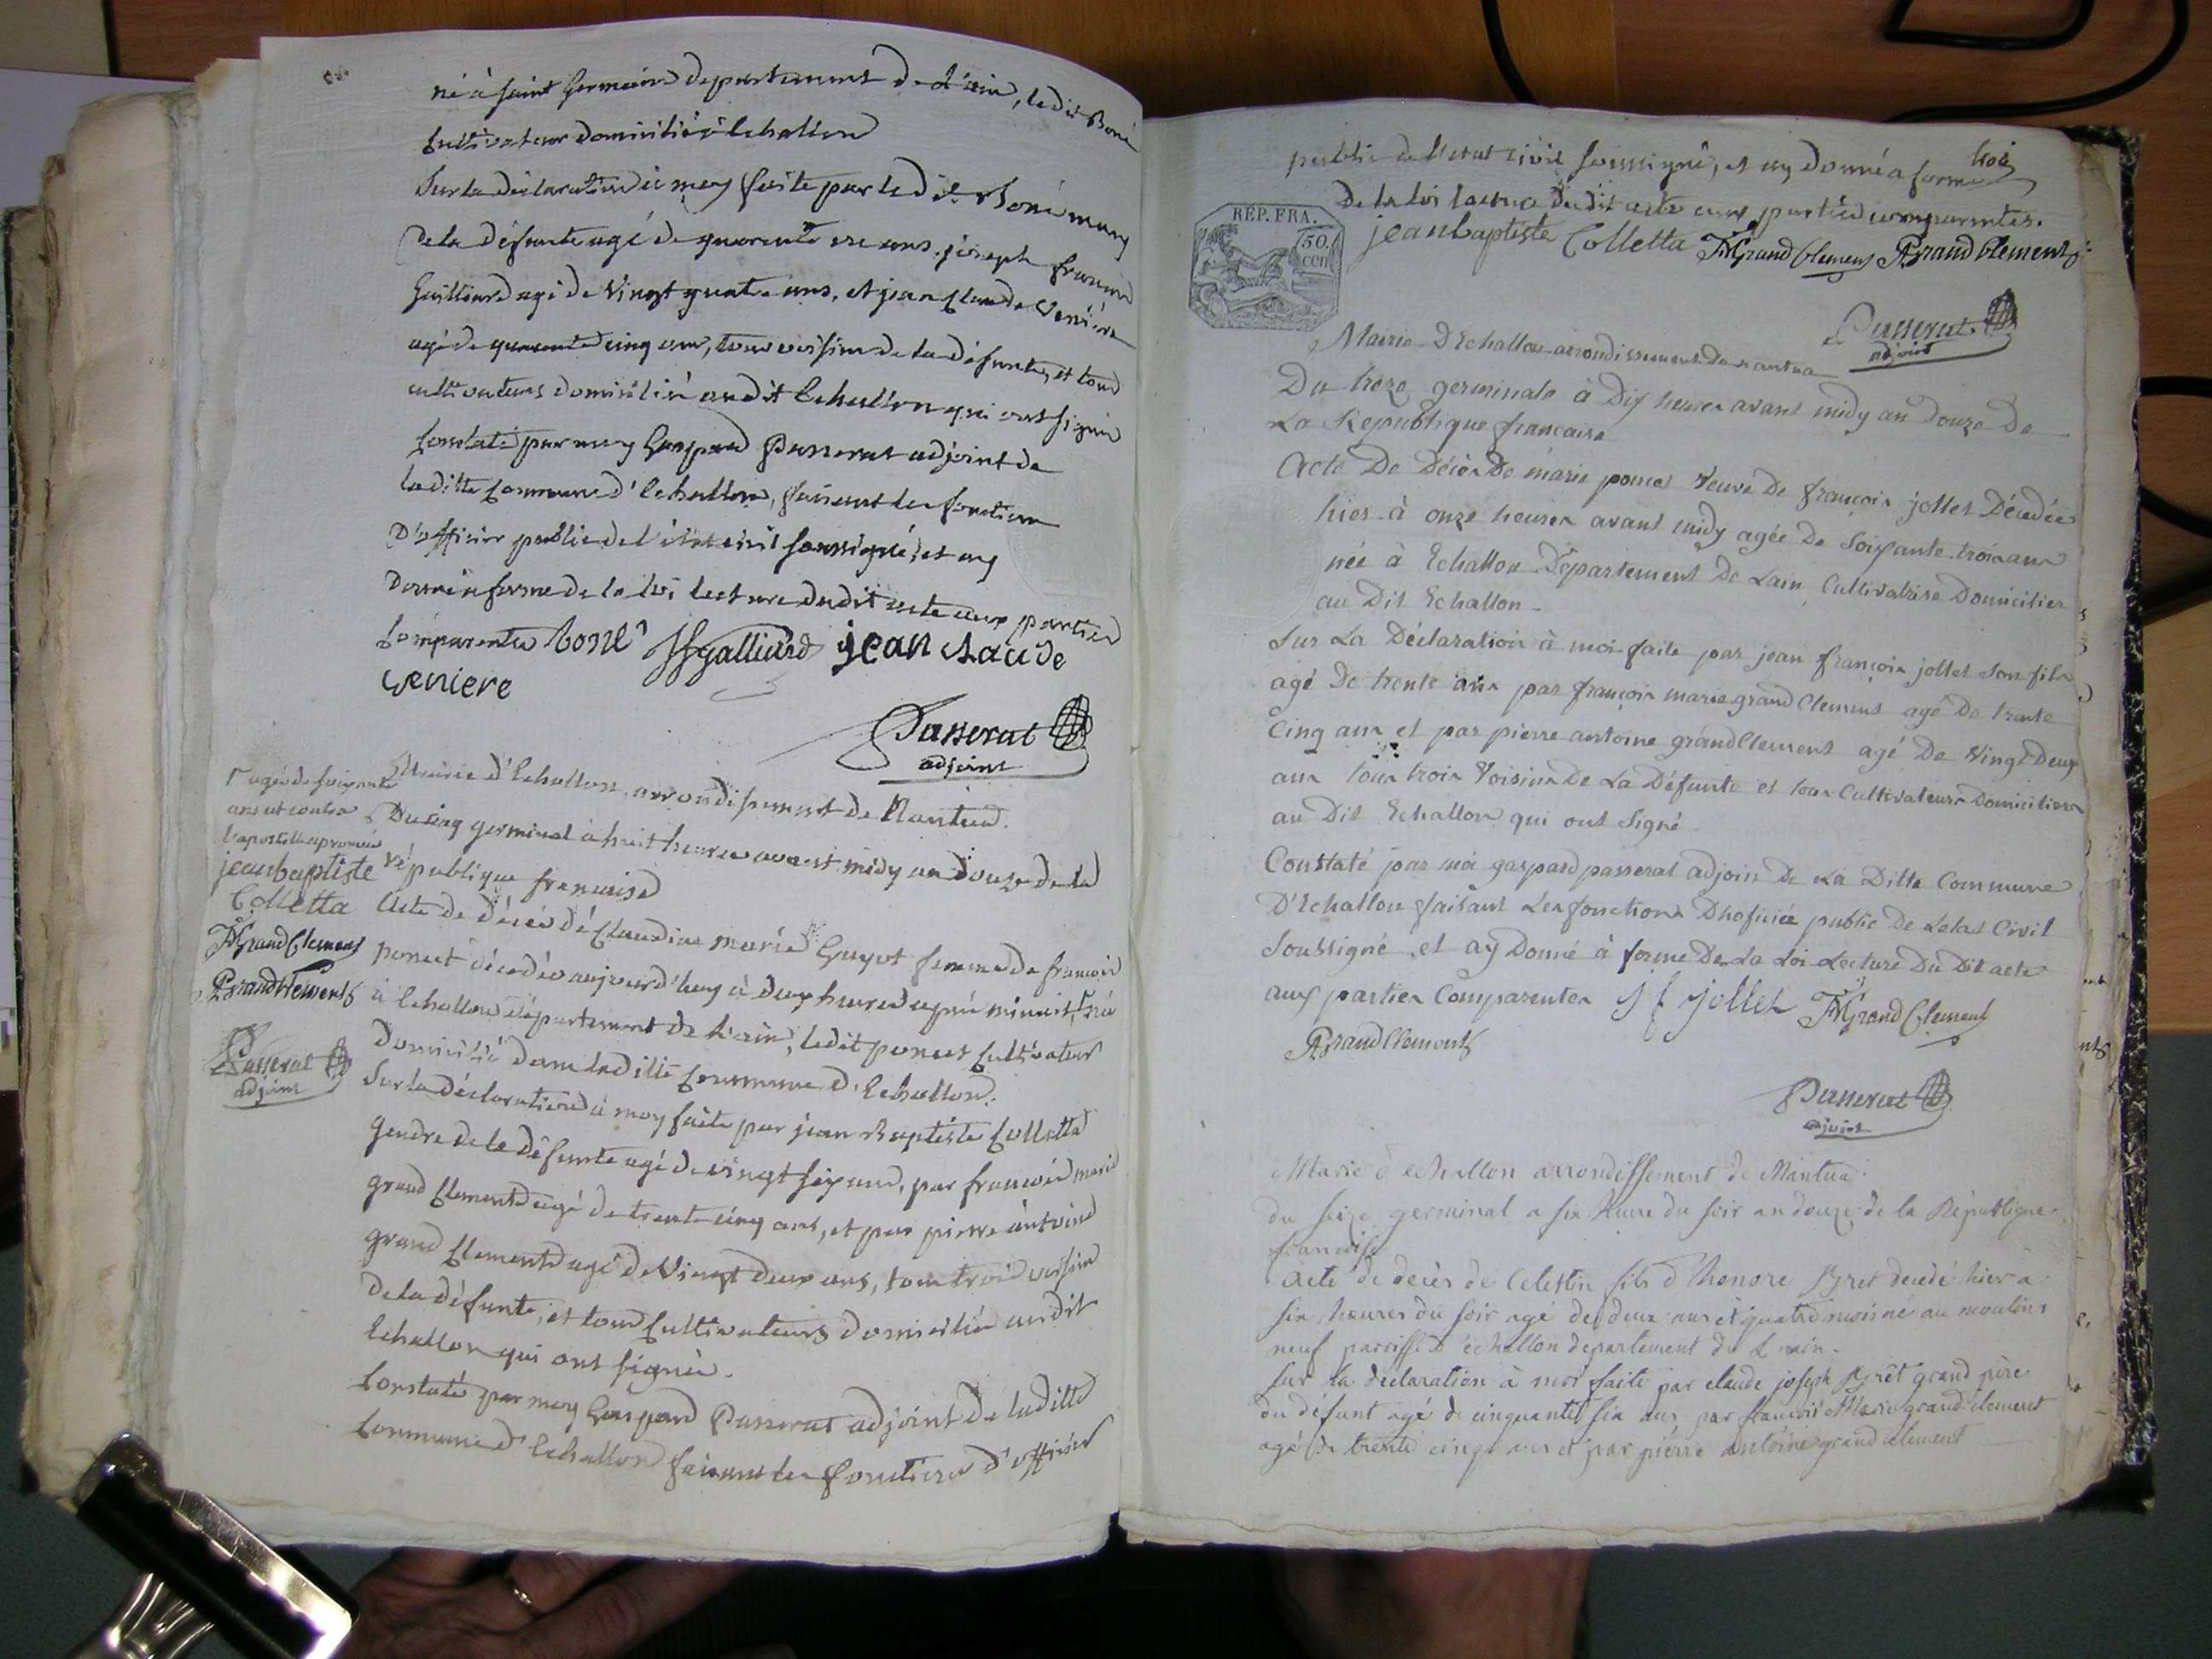 né à saint Germain departement de l'ain, ledit Boné
Cultivateur domicilié à Echallon
Sur la déclaration à moy faite par ledit Boné mary
de la défunte agé de quarente ans, joseph francois
Gailliard agé de Vingt quatre ans, et jean Claude Veniere
agé de quarente cinq ans, tous voisins de la défunte, et tous
cultivateurs domiciliés audit Echallon qui ont signé
Constaté par moy Gaspard Passerat adjoint de
laditte Commune d'Echallon, faisant les fonctions
D'officier public de l'état civil soussigné, et ay
Donné à forme de la loi lecture dudit acte aux parties
Comparentes boné JfGalliard jean claude
veniere
Passerat
adjoint
Mairie d'Echallon, arrondissement de Nantua.
Du cinq germinal à huit heures avant midy an Douze de la
république francaise
Acte de décès de Claudine marie Guyot femme de francois
poncet décédée aujourd'huy à deux heures après minuit, née
à Echallon département de l'ain, ledit poncet Cultivateur
Domicilié dans laditte Commune d'Echallon.
Sur la déclaration à moy faite par jean Baptiste Colletta
gendre de la défunte agé de vingt six ans, par francois marie
grand Clement agé de trente cinq ans, et par pierre antoine
grand Clement agé de Vingt deux ans, tous trois voisins
de la défunte, et tous Cultivateurs domiciliés audit
Echallon qui ont signé.
Constaté par moy Gaspard Passerat adjoint de laditte
Commune d'Echallon faisant les fonctions d'officier
agée de soixante
ans
l'apostille aprouvée
jean baptiste
Colletta
FMGrand Clement
PAGrandClement
Passerat
adjoint
trois
public de l'etat civil soussigné, et ay donné a forme
De la loi lecture dudit acte aux parties comparentes.
jean baptiste Colletta FMGrand Clement PAGrand Clement
REP. FRA.
50.
cen
Passerat
adjoint
Mairie D'Echallon arrondissement de nantua
Du treze germinale à Dix heures avant midy an Douze De
La Republique francaise
Acte De Décès De marie poncet Veuve De françois jollet Décédée
hier à onze heures avant midy agée De Soixante trois ans
née à Echallon Département De Lain Cultivatrise Domicilier
au Dit Echallon
Sur La Déclaration à moi faite par jean françois jollet Son fils
agé De trente ans par françois marie grand Clement agé De trente
Cinq ans et par pierre antoine grand Clement agé De Vingt Deux
ans tous trois Voisins De La Défunte et tous Cultivateurs Domicilies
au Dit Echallon qui ont Signé
Constaté par moi gaspard passerat adjoin De La Ditte Commune
D'Echallon faisant Les fonctions Dhoficiée public De Letat Civil
Soussigné, et ay Donné à forme De La Loi Lecture Du Dit acte
aux parties Comparentes J f jollet FMGrand Clement
PAGrandClement
Passerat
adjoint
Marie d'echallon arrondissement de Nantua.
du seize germinal a six heure du soir an douze de la République
francoise
Acte de decès de Celestin fils d'Honore Bret decedé hier a
six heures du soir agé de deux ans et quatre mois né au moulins
neuf parroisse d'échallon departement de L'ain.
sur la déclaration à moi faite par claude joseph Brêt grand père
du défunt agé de cinquante six ans par francois Marie grand clement
agé de trente cinqs ans et par piérre antoine grand clement